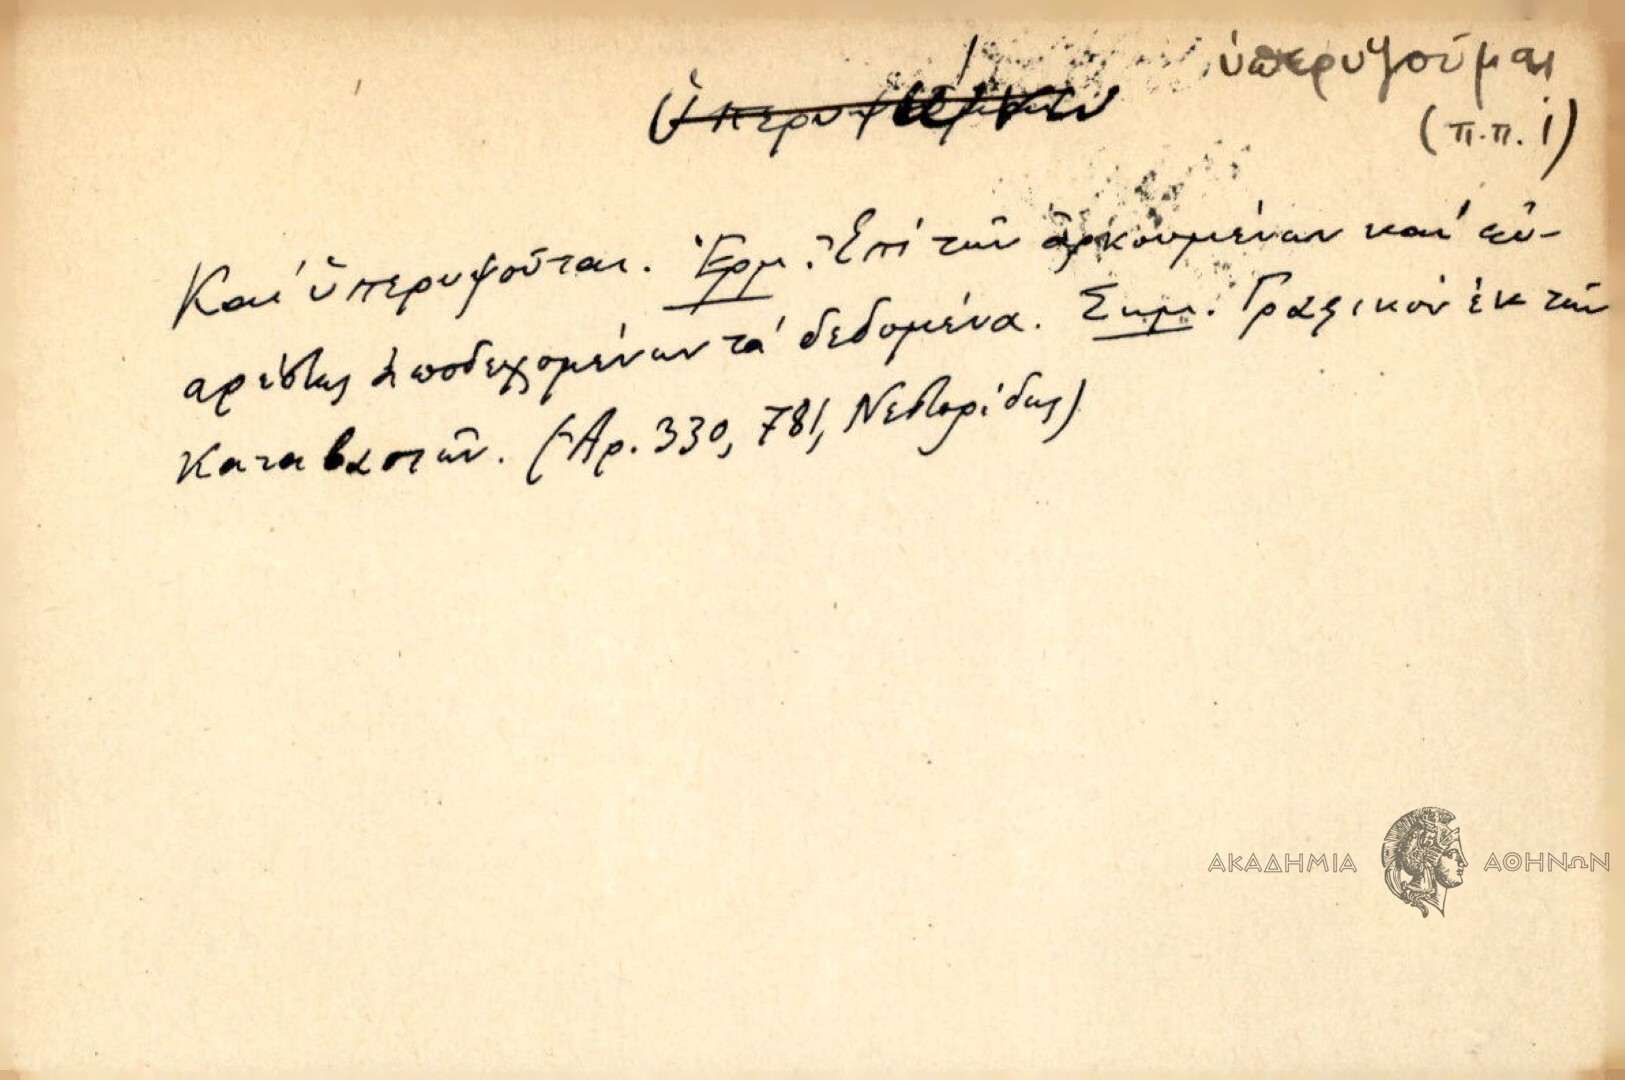 ὑπερυψούμαι
(π.π. 1)
Καὶ ὑπερυψοῦται. Ἑρμ. Ἐπὶ τῶν ἀρκουμένων καὶ εὐ-
αρέστως ἀποδεχομένων τὰ δεδομένα. Σημ. Γραφικὸν ἐκ τῶν
Καταβασιῶν. (Ἀρ. 330, 781, Νεστορίδης)
ΑΚΑΔΗΜΙΑ ΑΘΗΝΩΝ